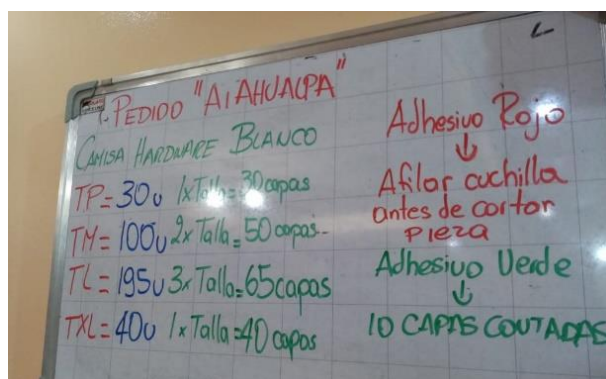 1. PEDIDO "AIAHUALPA"
CAMISA HARDWARE BLANCO
TP = 30u 1xTalla = 30 capas
TM = 100u 2xTalla = 50 capas
TL = 195u 3xTalla = 65 capas
TXL = 40u 1xTalla = 40 capas
Adhesivo Rojo
↓
Afilar cuchilla
antes de cortar
PIEZA
Adhesivo Verde
↓
10 CAPAS COUTADAS